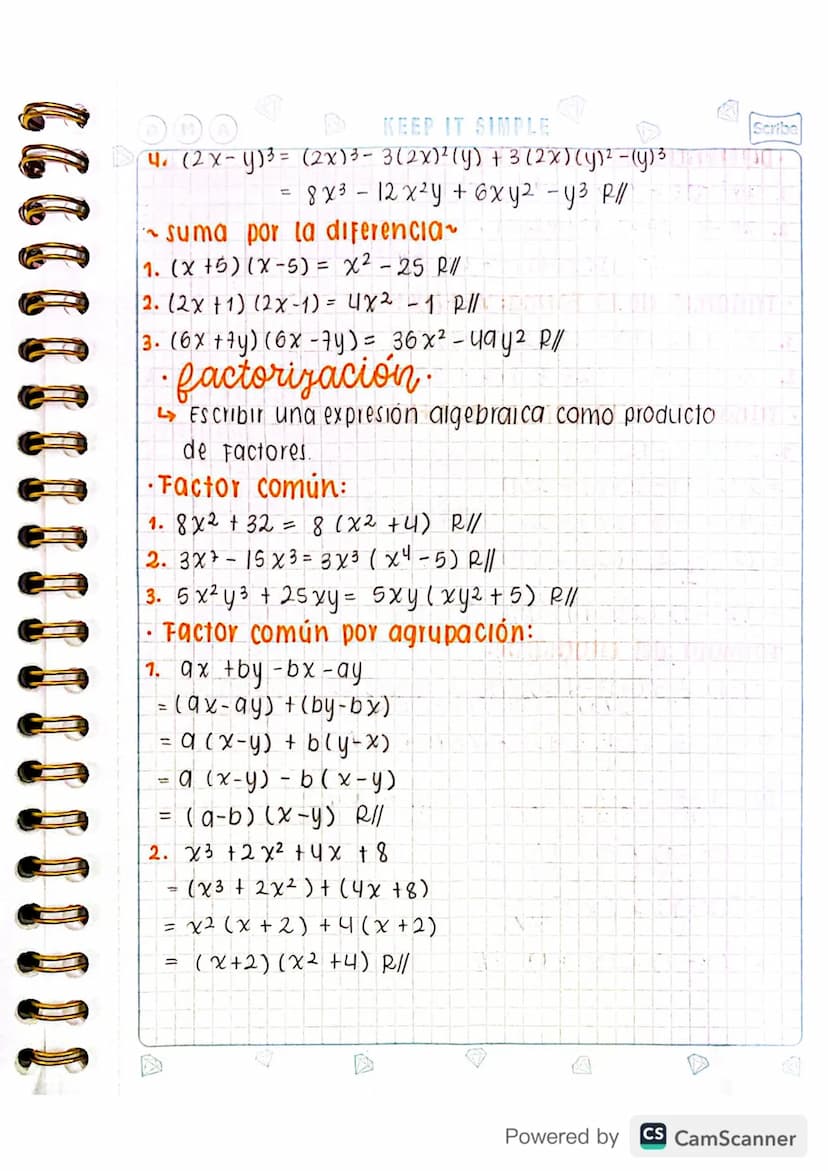 KEEP IT SIMPLE
Scribe
4. (2x-y)³ = (2x)³ - 3(2x)²(y) + 3(2x)(y)² -(y)³
= 8x³ - 12x²y + 6xy² - y³ R//
~ suma por la diferencia~
1. (x+5)(x-5) = x² - 25 R//
2. (2x+1)(2x-1) = 4x² - 1 R//
3. (6x+7y)(6x-7y) = 36x² - 49y² R//
· factorización ·
↳ Escribir una expresión algebraica como producto
de factores.
· Factor común:
1. 8x² + 32 = 8 (x² + 4) R//
2. 3x⁷ - 15x³ = 3x³ (x⁴ - 5) R//
3. 5x²y³ + 25xy = 5xy (xy² + 5) R//
· Factor común por agrupación:
1. ax + by - bx - ay
= (ax-ay) + (by-bx)
= a (x-y) + b(y-x)
= a (x-y) - b(x-y)
= (a-b)(x-y) R//
2. x³ + 2x² + 4x + 8
= (x³ + 2x²) + (4x + 8)
= x² (x+2) + 4(x+2)
= (x+2)(x² + 4) R//
Powered by CS CamScanner